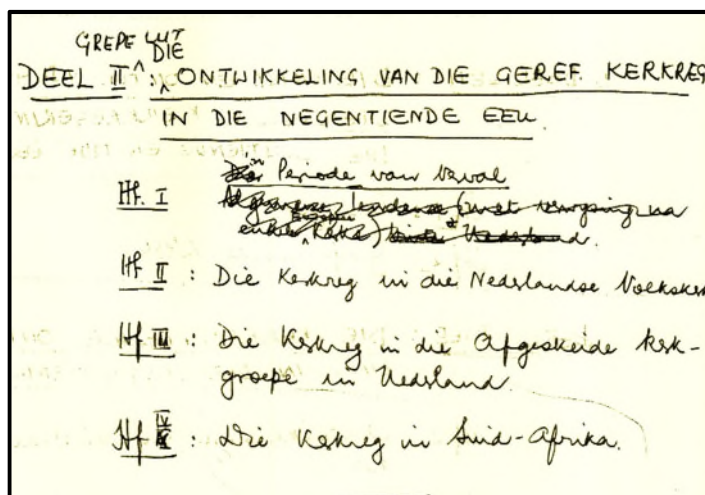 GREPE UIT DIE
DEEL II : ONTWIKKELING VAN DIE GEREF. KERKREG
IN DIE NEGENTIENDE EEU.
Periode van Verval
Hf. I
Hf II : Die Kerkreg in die Nederlandse Volkskerk
Hf III : Die Kerkreg in die Afgeskeide kerk-
groepe in Nederland.
Hf IV : Die Kerkreg in Suid-Afrika.